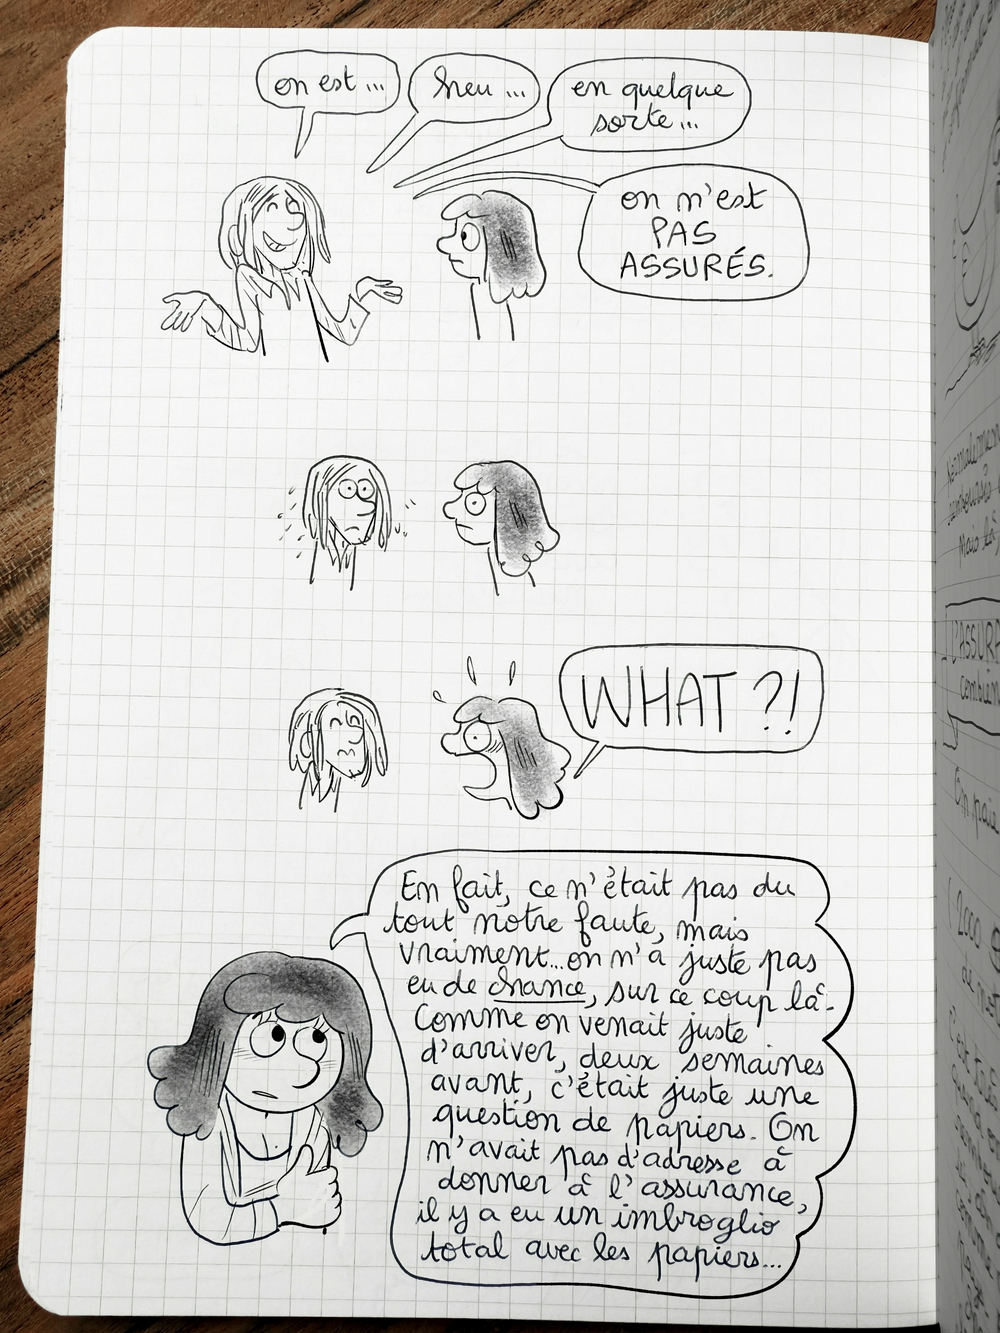 on est ...
heu ...
en quelque
sorte...
on n'est
PAS
ASSURÉS.
WHAT ?!
En fait, ce n'était pas du
tout notre faute, mais
vraiment...on n'a juste pas
eu de chance, sur ce coup là.
Comme on venait juste
d'arriver, deux semaines
avant, c'était juste une
question de papiers. On
n'avait pas d'adresse à
donner à l'assurance,
il y a eu un imbroglio
total avec les papiers...
Mais là
L'ASSURA
combien
On paie
2000